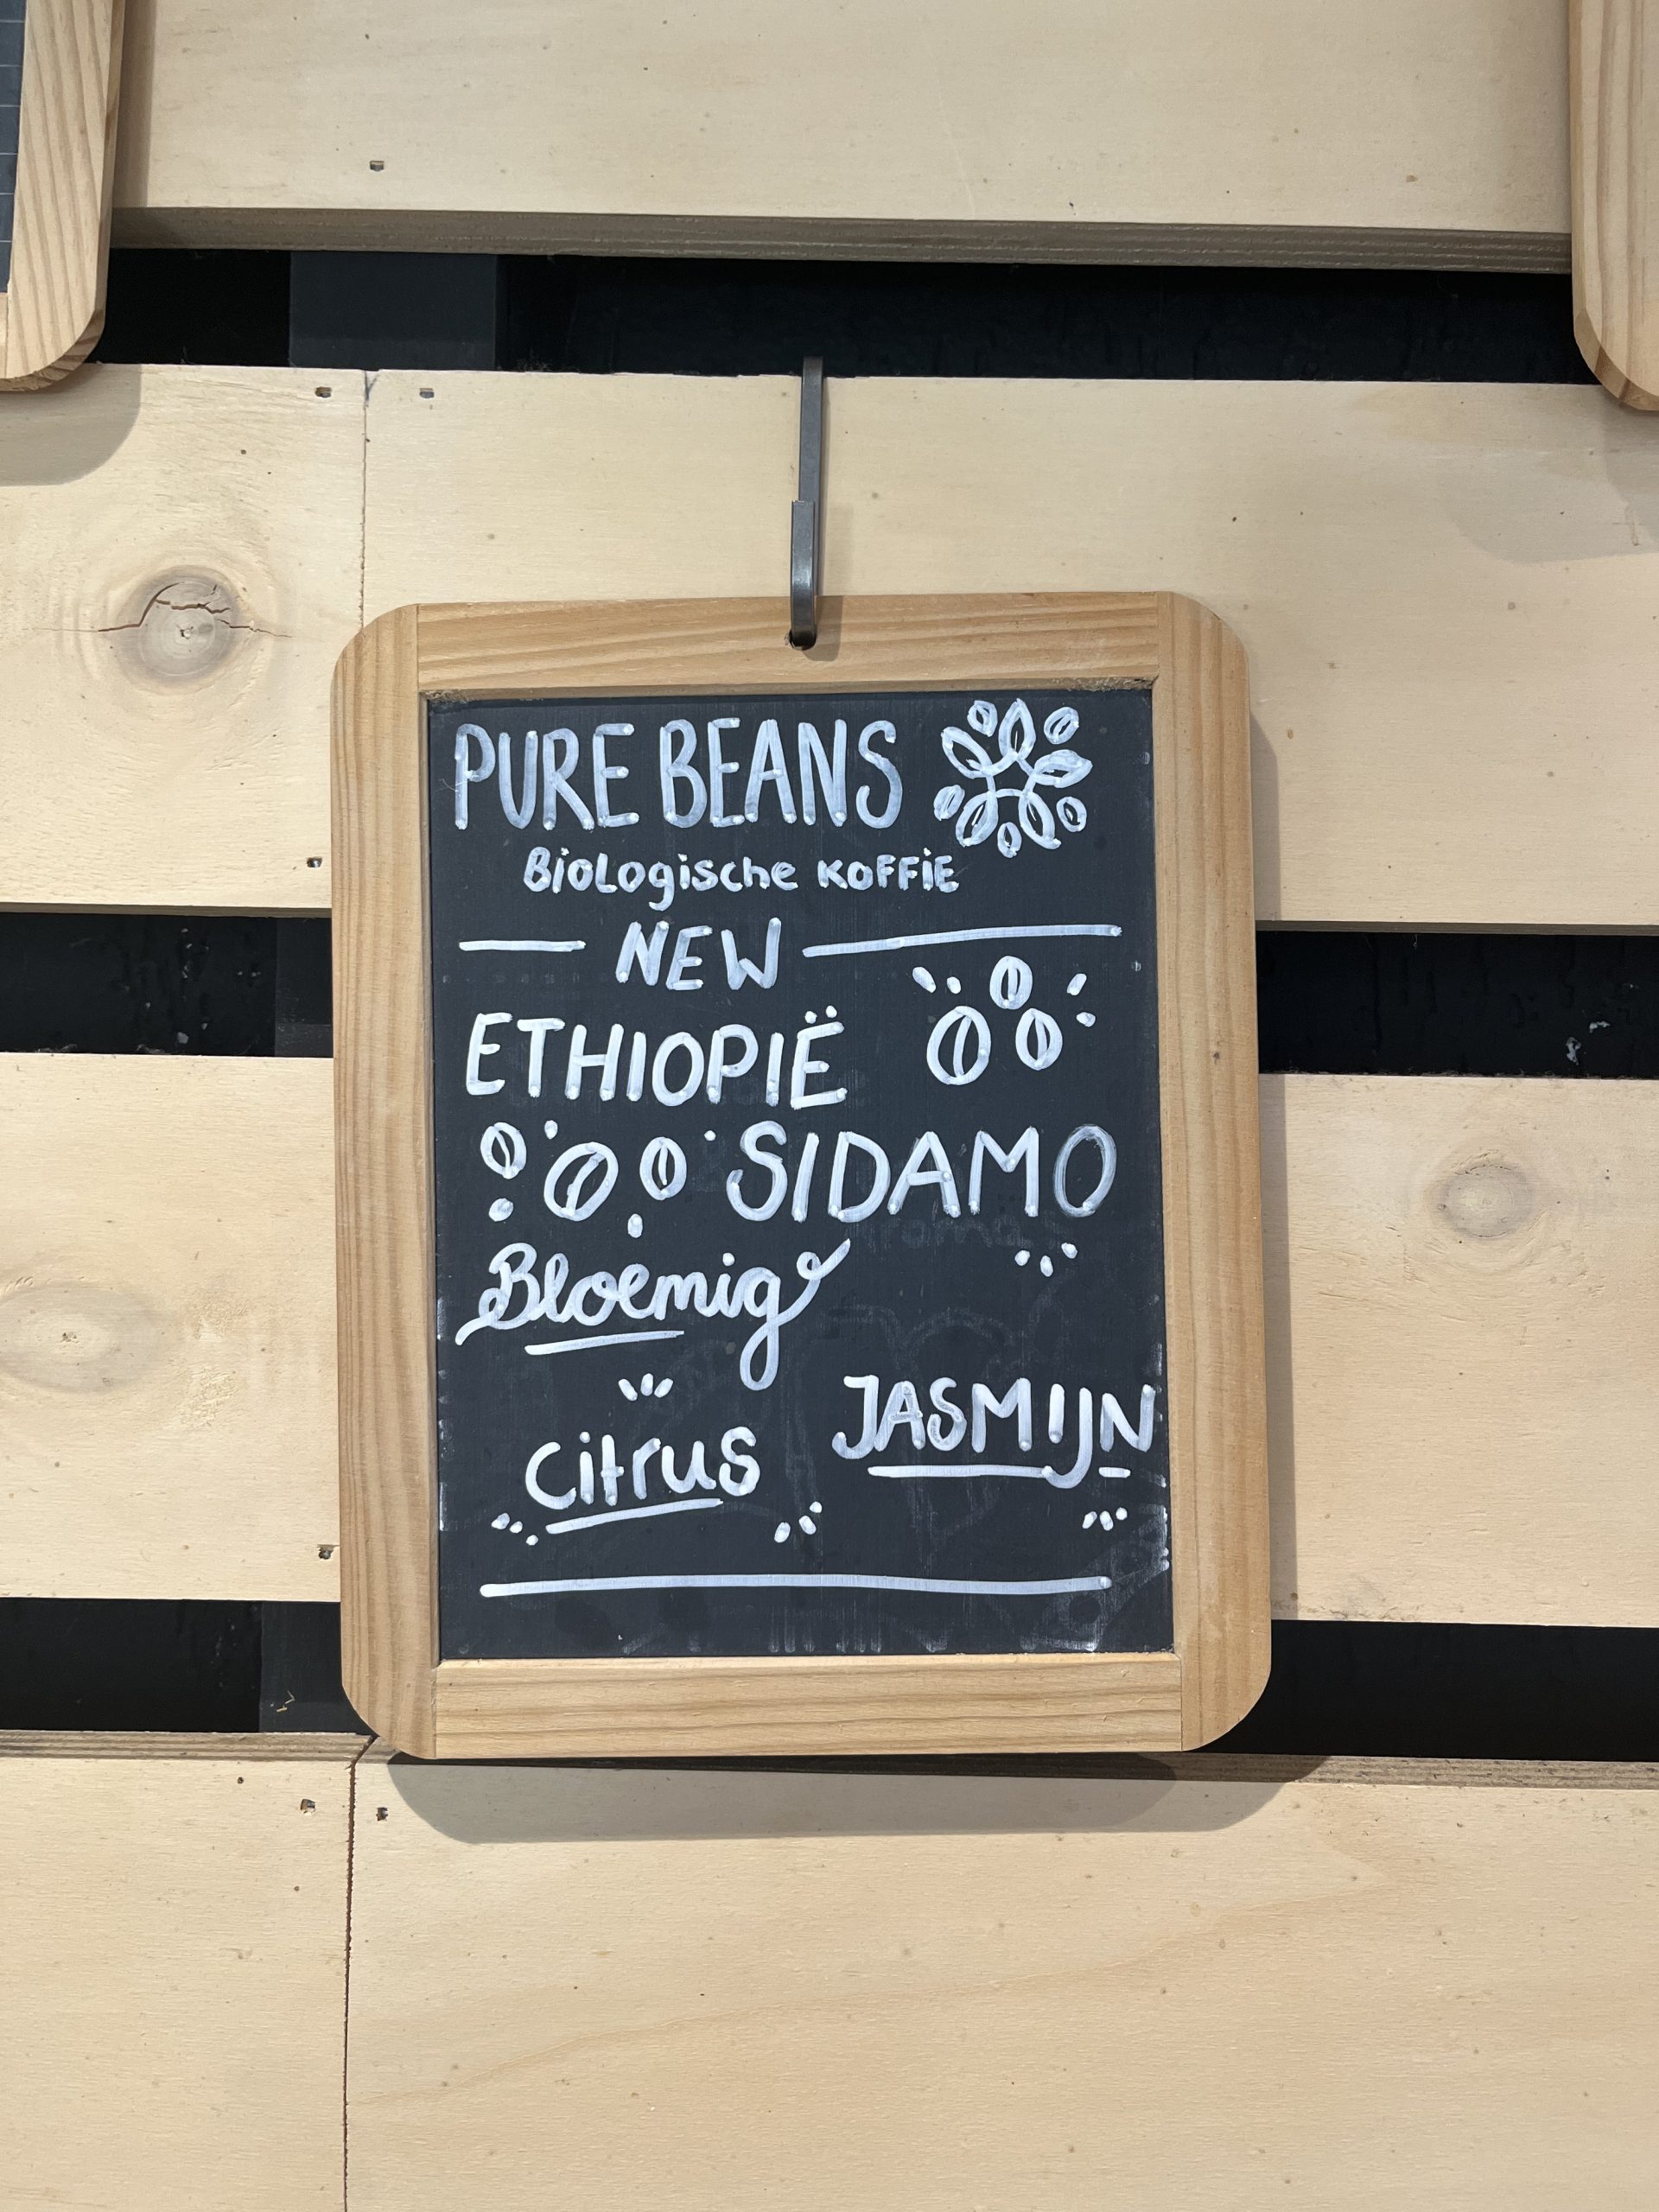 PURE BEANS
BioLogische KOFFiE
NEW
ETHIOPIË
SIDAMO
Bloemig
citrus
JASMIJN